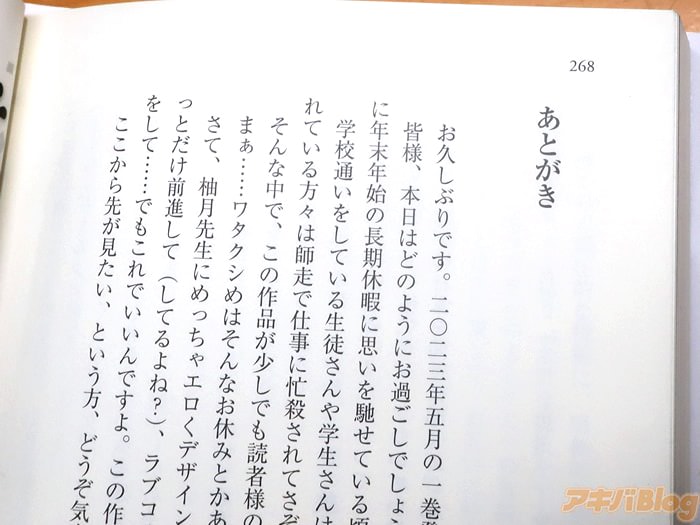 268
あとがき
お久しぶりです。二〇二三年五月の一巻発
皆様、本日はどのようにお過ごしでしょ
に年末年始の長期休暇に思いを馳せている頃
学校通いをしている生徒さんや学生さんは
れている方々は師走で仕事に忙殺されてさぞ
そんな中で、この作品が少しでも読者様の
まぁ……ワタクシめはそんなお休みとかあ
さて、柚月先生にめっちゃエロくデザイン
っとだけ前進して（してるよね？）、ラブコ
をして……でもこれでいいんですよ。この作
ここから先が見たい、という方、どうぞ気
アキバBlog